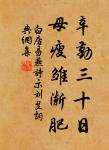 辛勤三十日
母瘦雛漸肥
白居易燕詩示劉叟詞
典網集